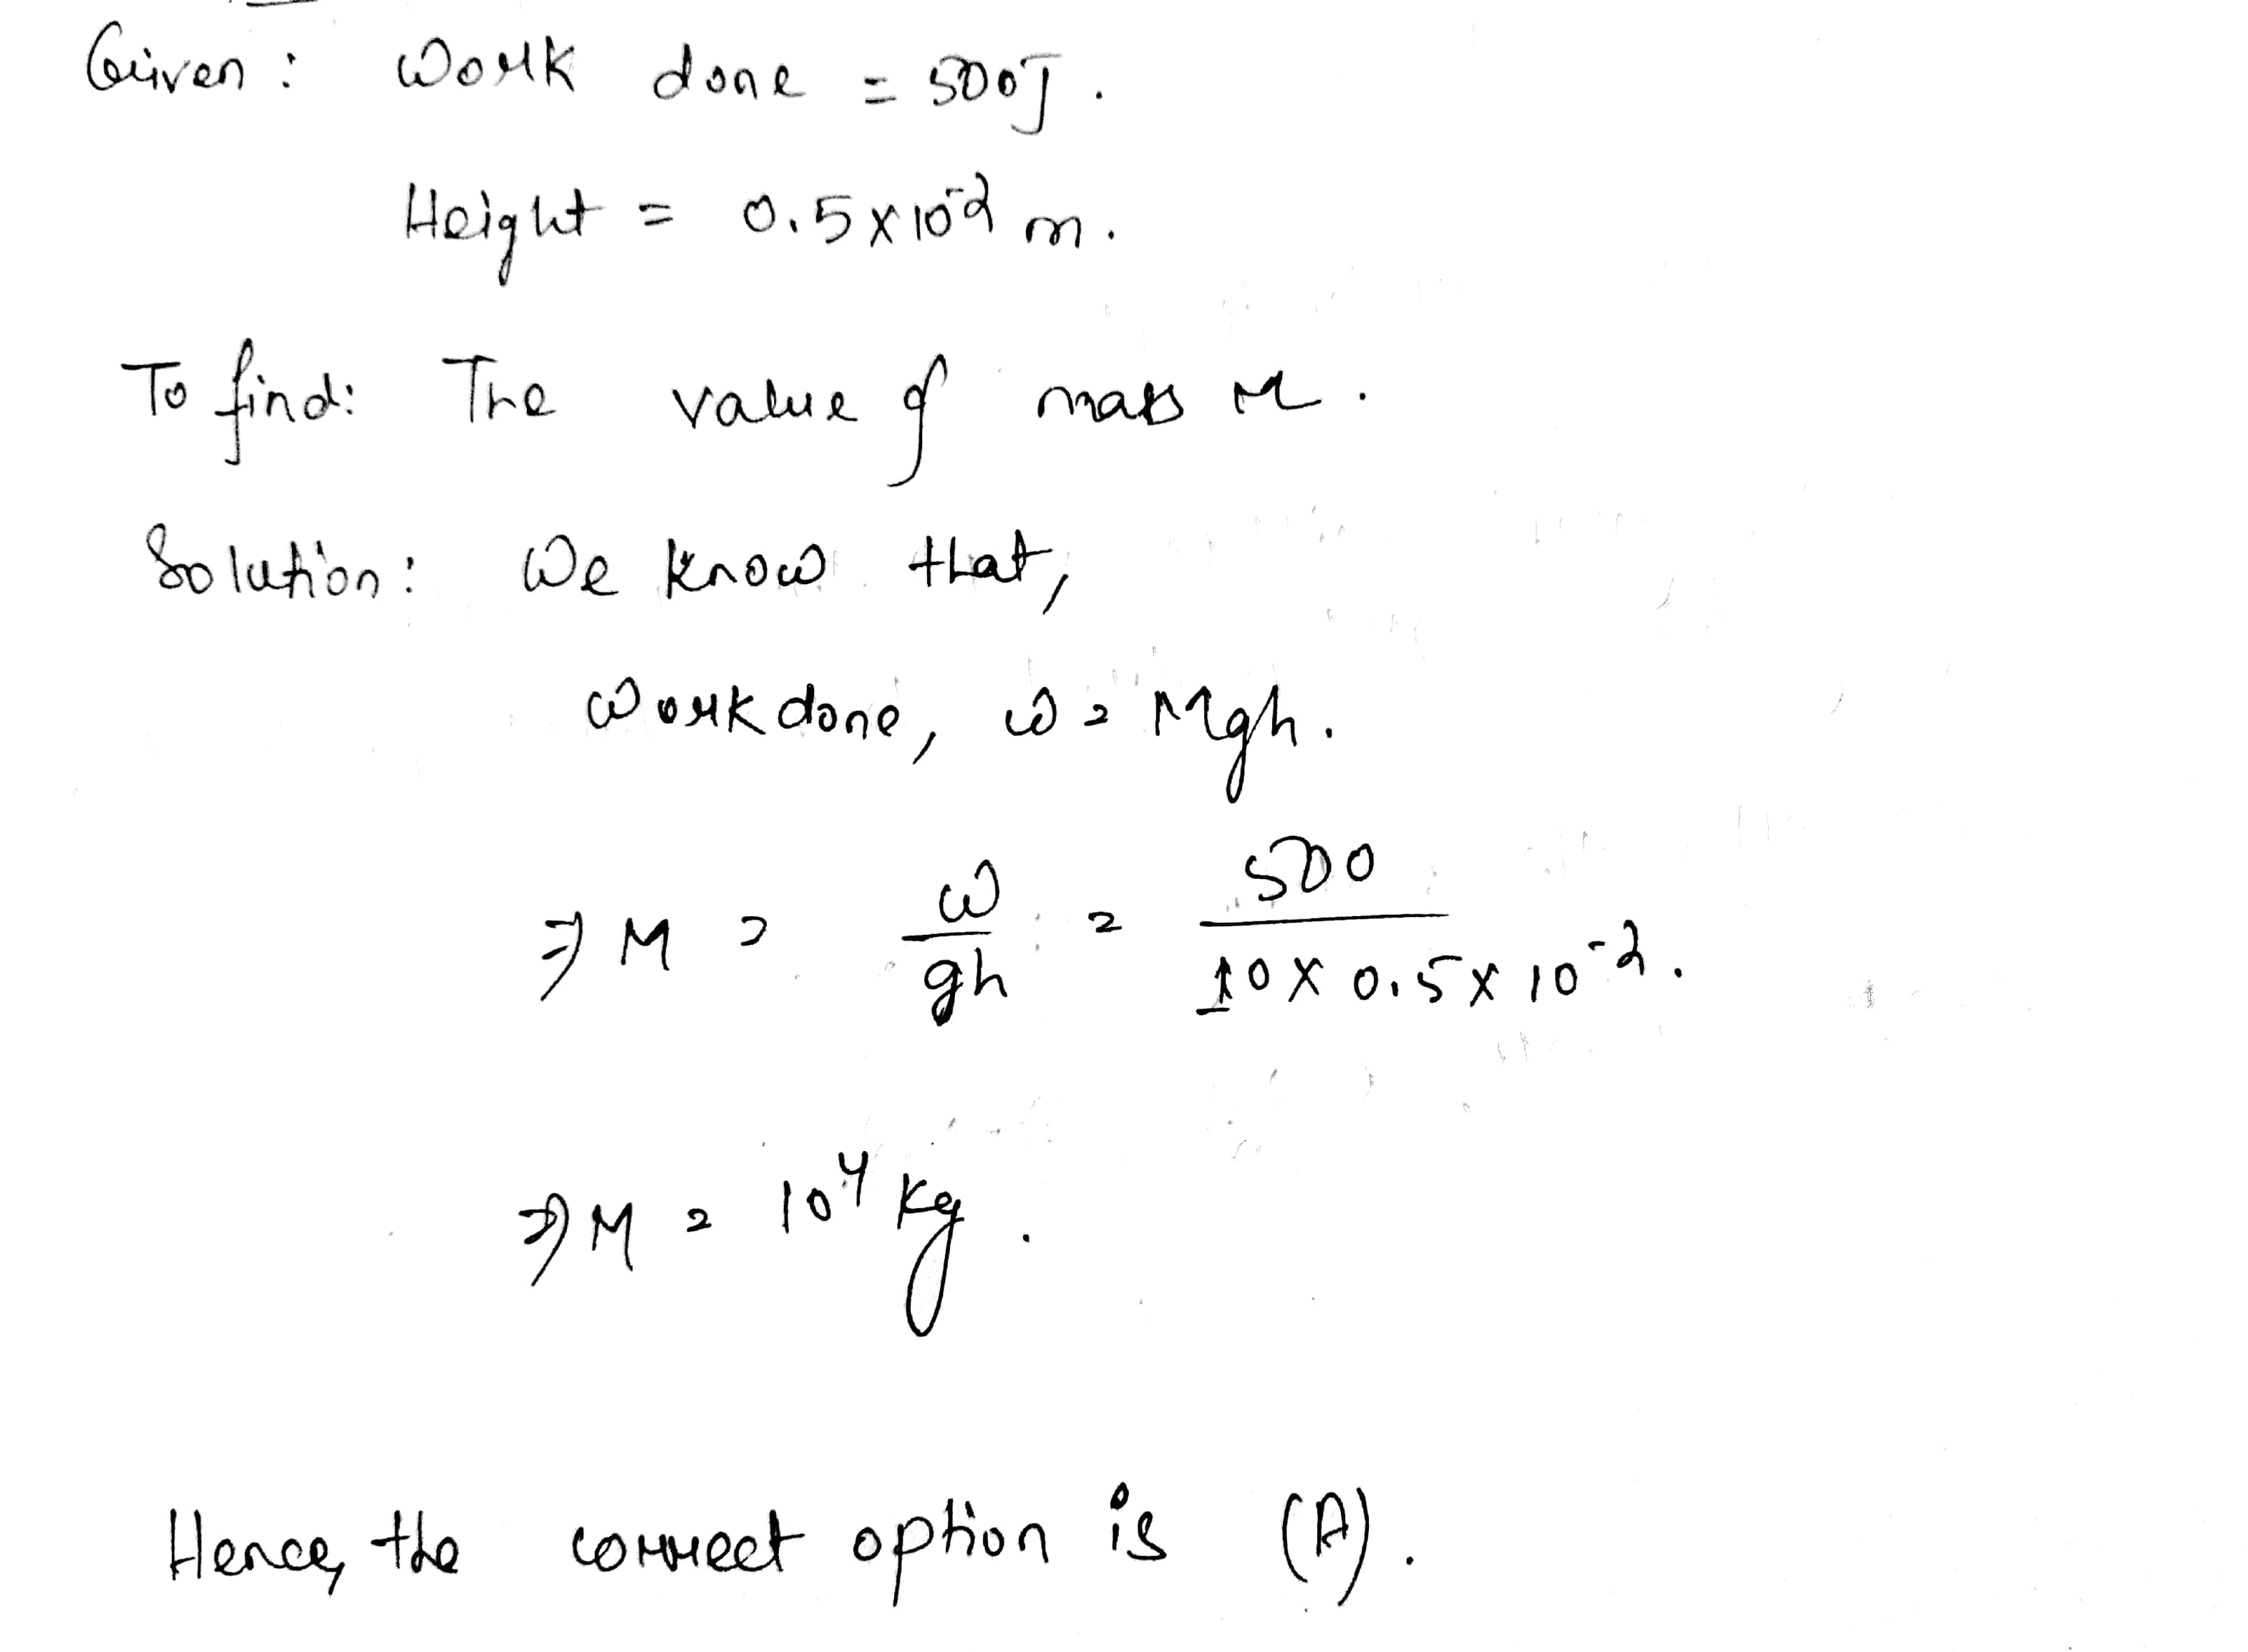 Given: Work done = 500J.
Height = 0.5×10⁻² m.
To find: The value of mass M.
Solution: We know that,
Work done, W = Mgh.
⇒ M = W/gh = 500/10×0.5×10⁻².
⇒ M = 10⁴ kg.
Hence, the correct option is (A).